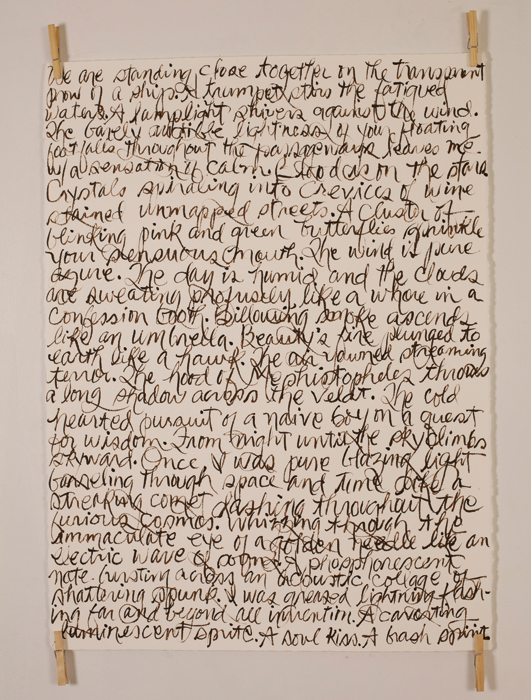 We are standing close together on the transparent
prow of a ship. A trumpet stirs the fatigued
waters. A lamplight shivers against the wind.
The barely audible lightness of your floating
footfalls throughout the passageways leaves me
w/ a sensation of calm. I stood as on the stairs
Crystals spiraling into crevices of wine
stained unmapped streets. A cluster of
blinking pink and green butterflies sprinkle
your sensuous mouth. The wind is pure
azure. The day is humid and the clouds
are sweating profusely like a whore in a
confession booth. Billowing smoke ascends
like an umbrella. Beauty's fire plunged to
earth like a hawk. The air yawned streaming
terror. The hood of Mephistopheles throws
a long shadow across the veldt. The cold
hearted pursuit of a naive boy on a quest
for wisdom. From night until the sky climbs
skyward. Once I was pure blazing light
barreling through space and time like a
streaking comet dashing throughout the
furious cosmos. Whizzing through the
immaculate eye of a golden needle like an
electric wave of A phosphorescent
note bursting across an acoustic collage of
shattering spunk. I was greased lightning flash-
ing far and beyond all invention. A cavorting
luminescent sprite. A soul kiss. A brash spirit